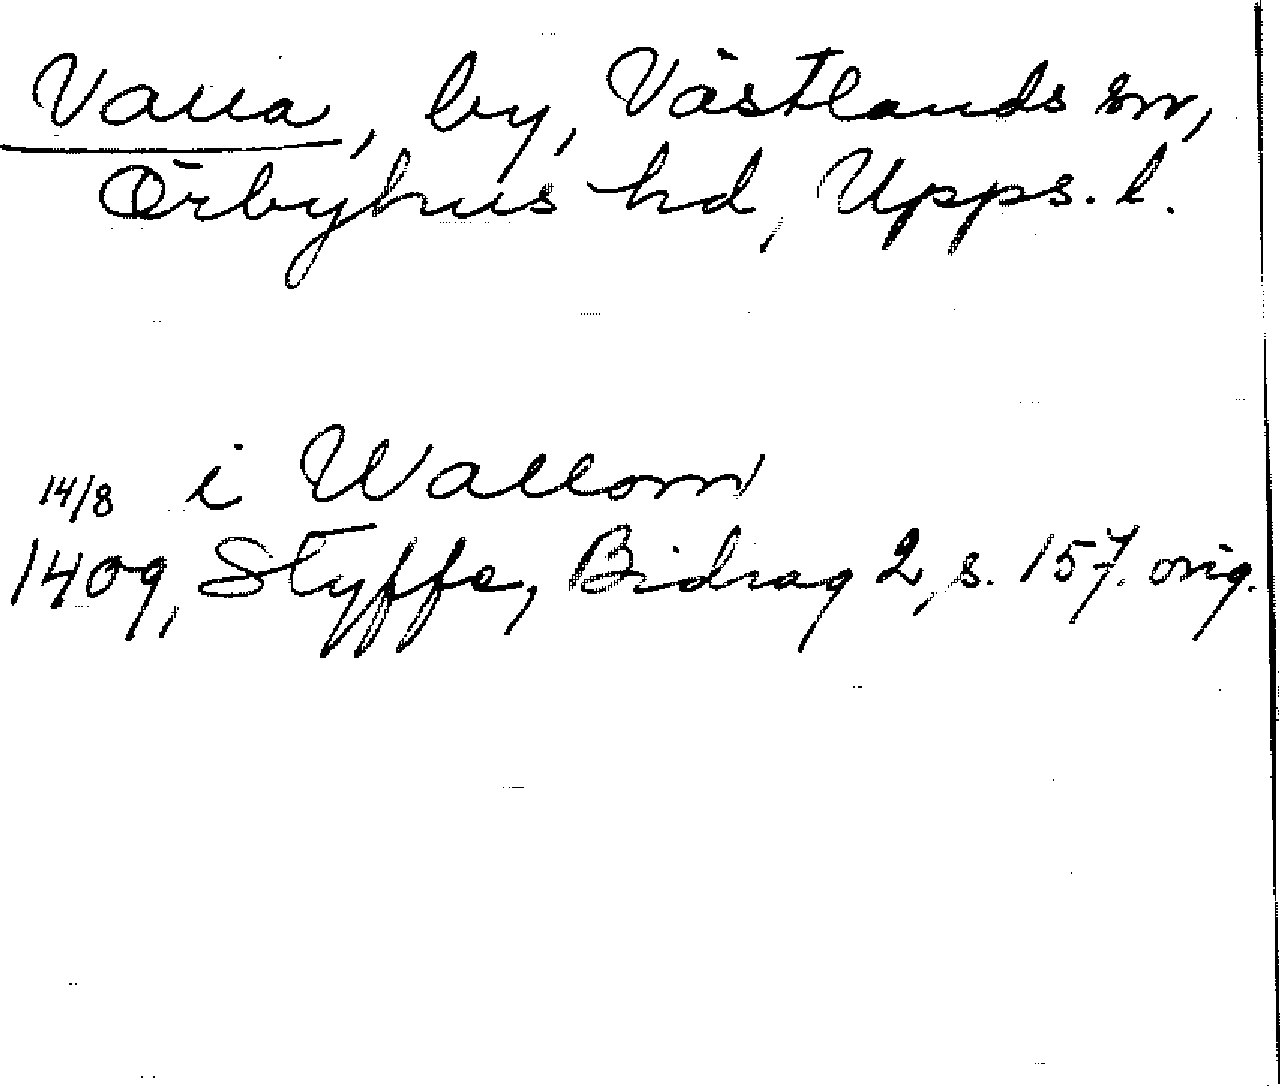 Valla, by, Västlands sn,
Örbyhus hd, Upps. l.
14/8 i Wallom
1409, Styffe, Bidrag 2, s. 157. orig.